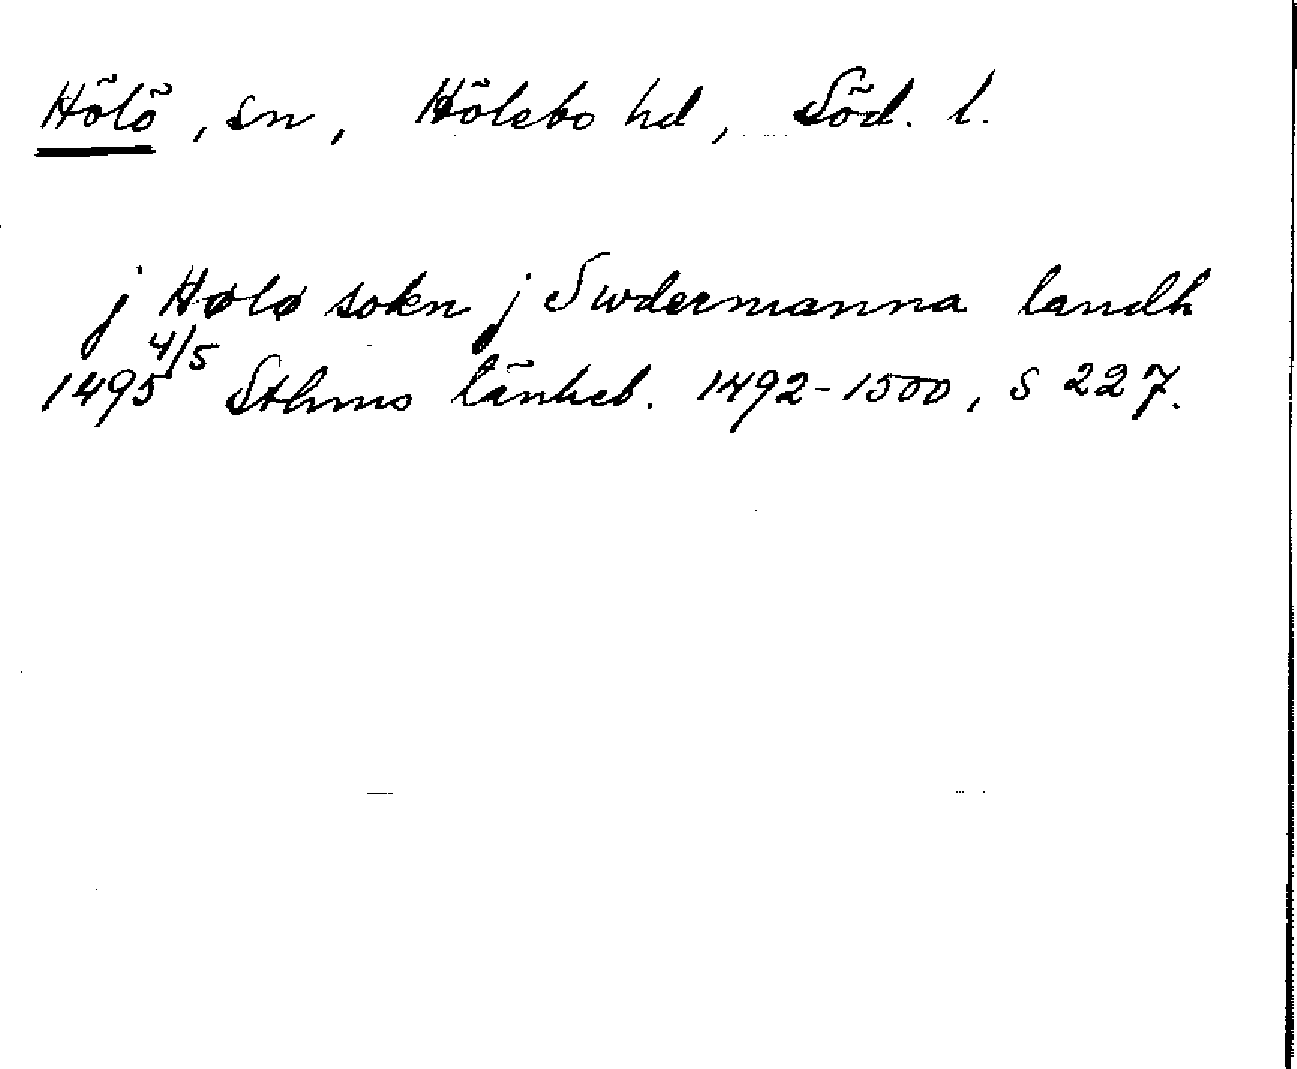 Hölö, sn, Hölebo hd, Söd. l.
j Hølø sokn j Swdermanna landh
1495 4/5 Sthms tänkeb. 1492-1500, S 227.